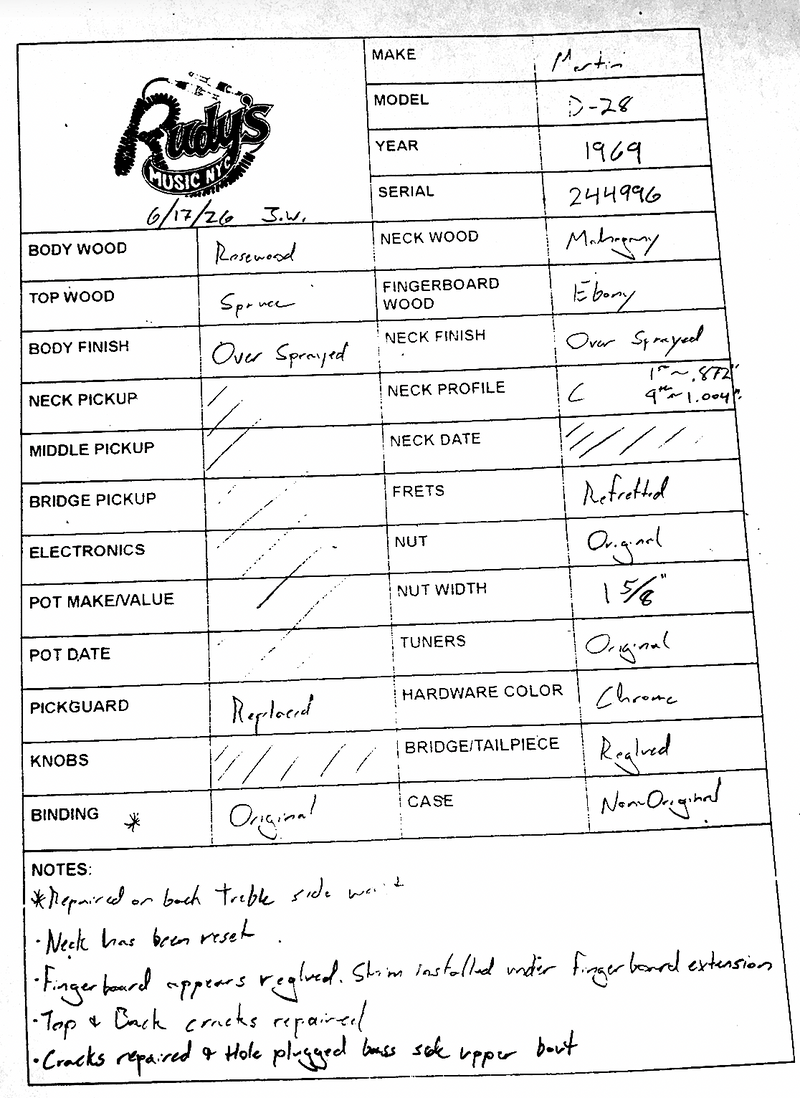 Rudy's
MUSIC NYC
6/17/26 J.W.
MAKE Martin
MODEL D-28
YEAR 1969
SERIAL 244996
BODY WOOD Rosewood NECK WOOD Mahogany
TOP WOOD Spruce FINGERBOARD WOOD Ebony
BODY FINISH Over Sprayed NECK FINISH Over Sprayed
NECK PICKUP NECK PROFILE C 1st ~ .872" 9th ~ 1.004"
MIDDLE PICKUP NECK DATE
BRIDGE PICKUP FRETS Refretted
ELECTRONICS NUT Original
POT MAKE/VALUE NUT WIDTH 1 5/8"
POT DATE TUNERS Original
PICKGUARD Replaced HARDWARE COLOR Chrome
KNOBS BRIDGE/TAILPIECE Reglued
BINDING * Original CASE Non-Original
NOTES:
*Repaired on back treble side waist
·Neck has been reset.
·Fingerboard appears reglued. Shim installed under fingerboard extension
·Top & Back cracks repaired
·Cracks repaired & Hole plugged bass side upper bout